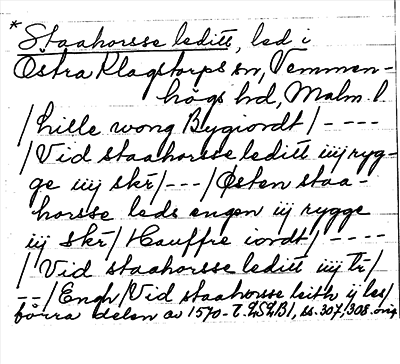 * Staahorsse leditt, led i
Östra Klagstorps sn, Vemmen-
högs hd, Malm. l.
/hille wong Bygiordt/----
/Vid staahorsse leditt iiij ryg-
ge iiij skr/---/Østen staa-
horsse leds engen ij rygge
ij skr/Hauffre iordt/----
/Vid staahorsse leditt iiij tr/
--/Engh/Vid staahorsse leith ij les/
förra delen av 1570-t. LSLB1, ss. 307, 308. orig